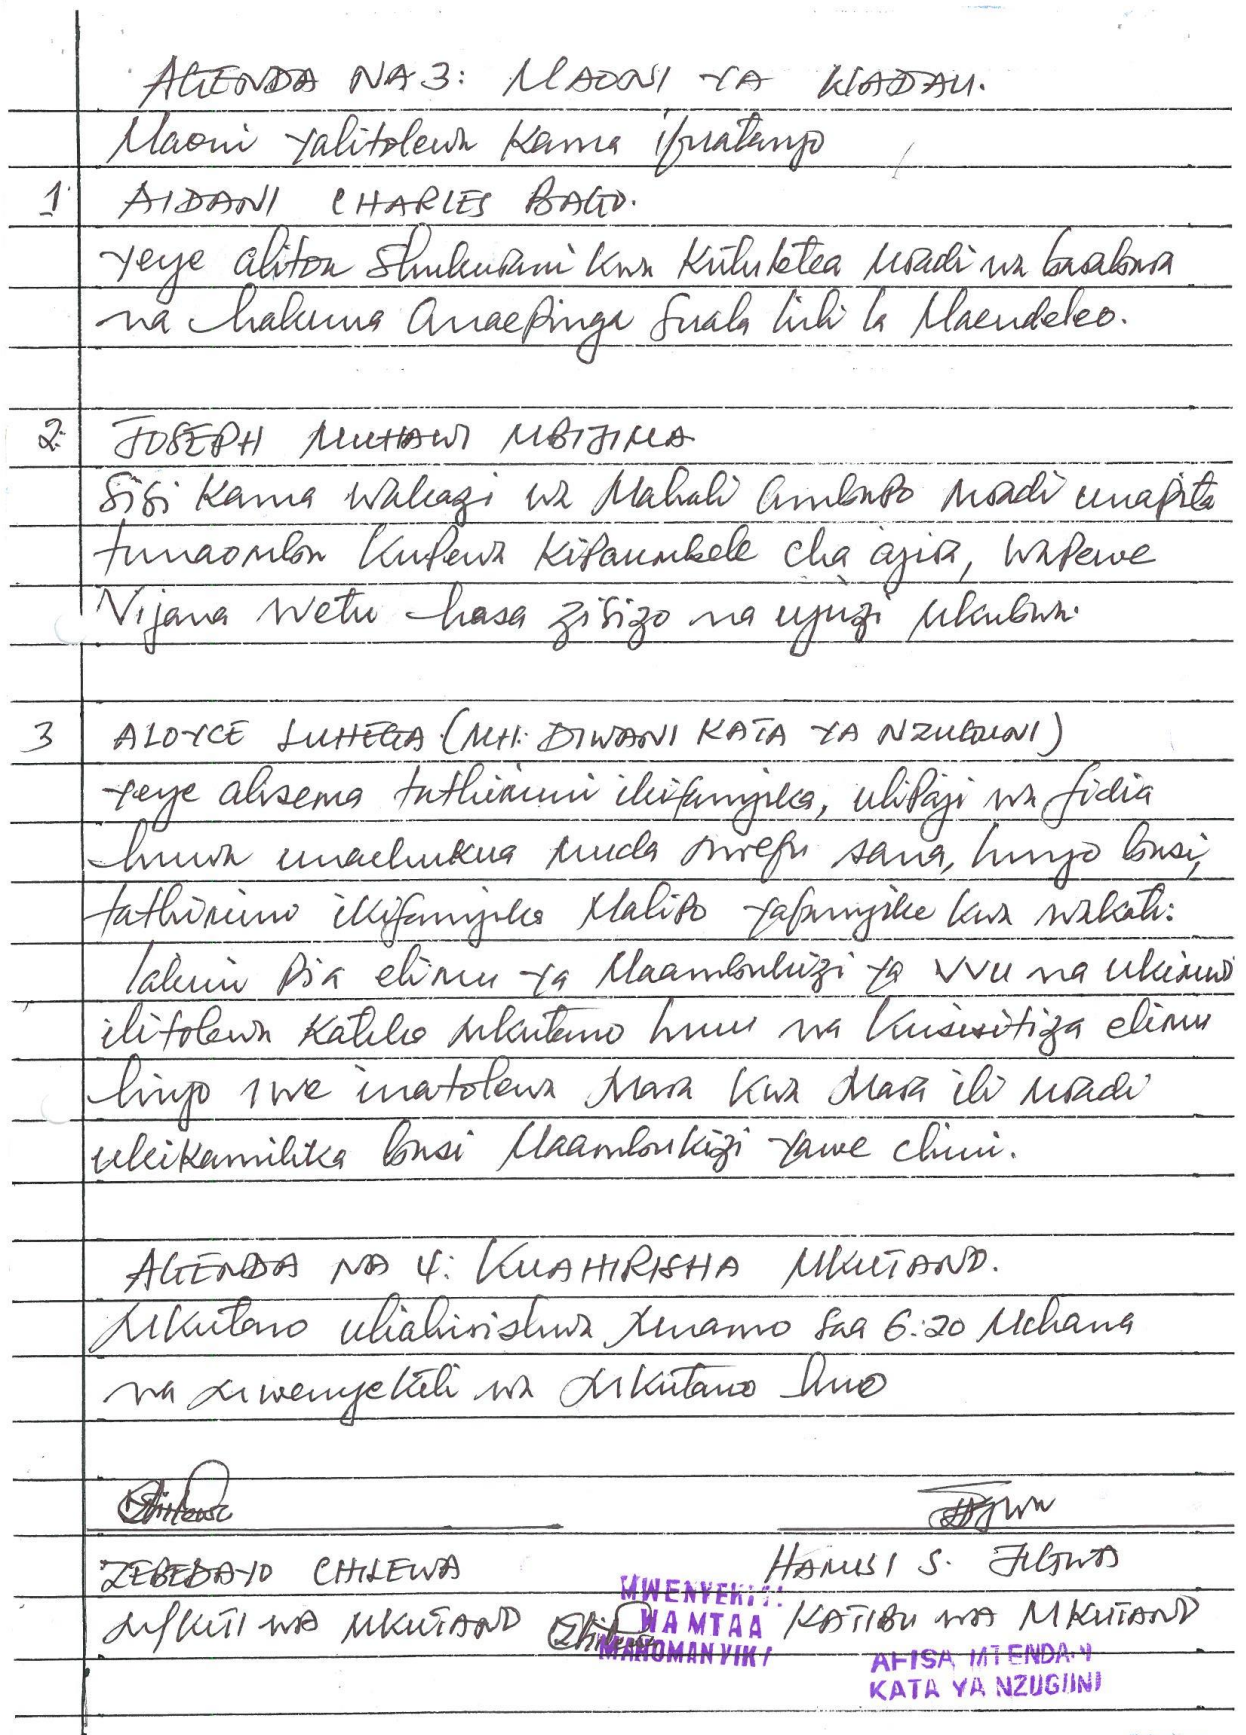 AGENDA NA 3: MAONI YA WADAU.
Maoni yalitolewa kama ifuatanyo
1 AIDANI CHARLES BAGO.
yeye alitoa shukurani kwa kutuletea mradi wa barabara
na hakuna anaepinga suala hili la Maendeleo.
2. JOSEPH MUHAWI MBIJIMA
Sisi kama wakazi wa Mahali ambapo mradi unapita
tunaomba kupewa kipaumbele cha ajira, wapewe
Vijana wetu hasa zisizo na ujuzi mkubwa.
3 ALOYCE LUHEGA (MH: DIWANI KATA YA NZUGUNI)
yeye alisema tathimini ikifanyika, ulipaji wa fidia
huwa unachukua muda mrefu sana, hinyo basi,
tathimini ikifanyika Malipo yafanyike kwa wakati:
lakini pia elimu ya Maambukizi ya VVU na ukimwi
ilitolewa katika mkutano huu na kusisitiza elimu
hiyo iwe inatolewa Mara kwa Mara ili mradi
ukikamilika basi Maambukizi yawe chini.
AGENDA NA 4: KUAHIRISHA MKUTANO.
Mkutano uliahirishwa mnamo saa 6:20 Mchana
na mwenyekiti wa mkutano huo
ZEBEDAYO CHILEWA HAMISI S. JUGWA
M/KITI WA MKUTANO KATIBU WA MKUTANO
MWENYEKITI
WA MTAA
MAHOMANYIKI
AFISA MTENDAJI
KATA YA NZUGUNI